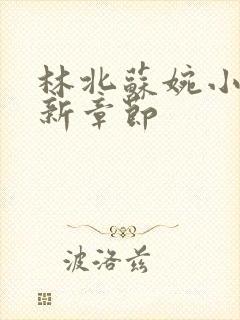 林北蘇婉小
新章節
波洛茲